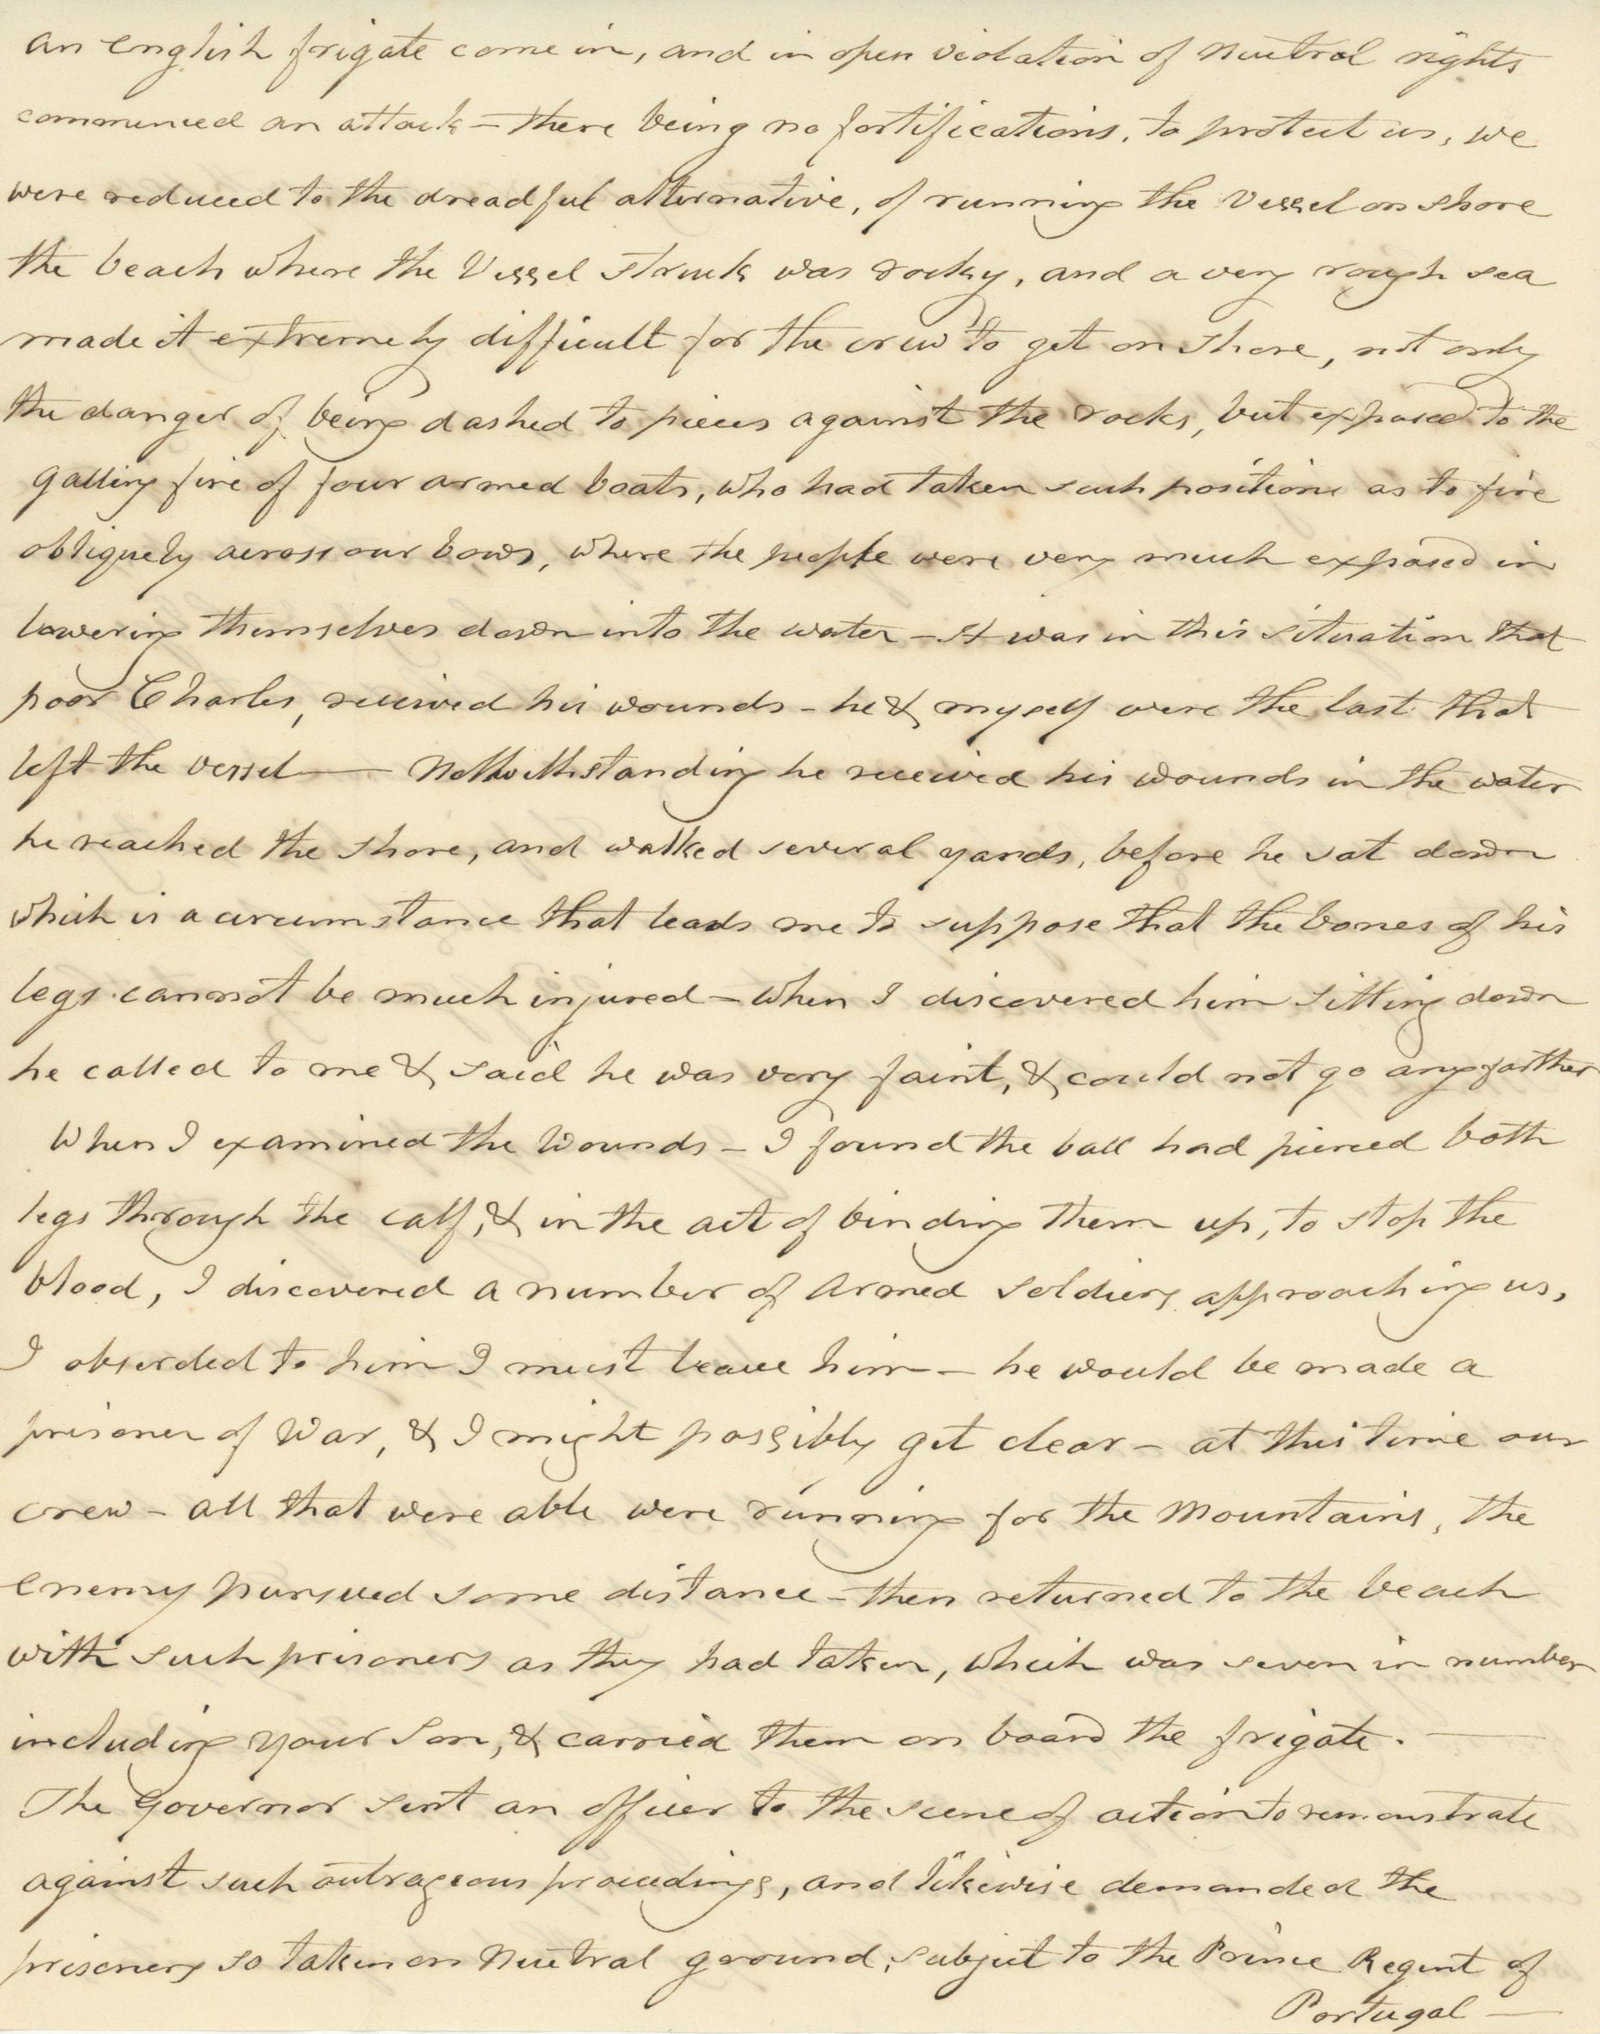 an English frigate come in, and in open violation of Nuetral rights
commenced an attack – there being no fortifications, to protect us, we
were reduced to the dreadful alternative, of running the Vessel on shore
the beach where the Vessel struck was rocky, and a very rough sea
made it extremely difficult for the crew to get on shore, not only
the danger of being dashed to pieces against the rocks, but exposed to the
galling fire of four armed boats, who had taken such positions as to fire
obliquely across our bows, where the people were very much exposed in
lowering themselves down into the water – It was in this situation that
poor Charles, received his wounds – he & myself were the last that
left the vessel — Notwithstanding he received his wounds in the water
he reached the shore, and walked several yards, before he sat down
which is a circumstance that leads me to suppose that the bones of his
legs cannot be much injured – When I discovered him sitting down
he called to me & said he was very faint, & could not go any farther
When I examined the Wounds – I found the ball had pierced both
legs through the calf, & in the act of binding them up, to stop the
blood, I discovered a number of Armed soldiers approaching us,
I observed to him I must leave him – he would be made a
prisoner of War, & I might possibly get clear – at this time our
crew – all that were able were running for the Mountains, the
enemy pursued some distance – then returned to the beach
with such prisoners as they had taken, which was seven in number
including your Son, & carried them on board the frigate. —
The Governor sent an officer to the scene of action to remonstrate
against such outrageous proceedings, and likewise demanded the
prisoners so taken on Nuetral ground, subject to the Prince Regent of
Portugal —